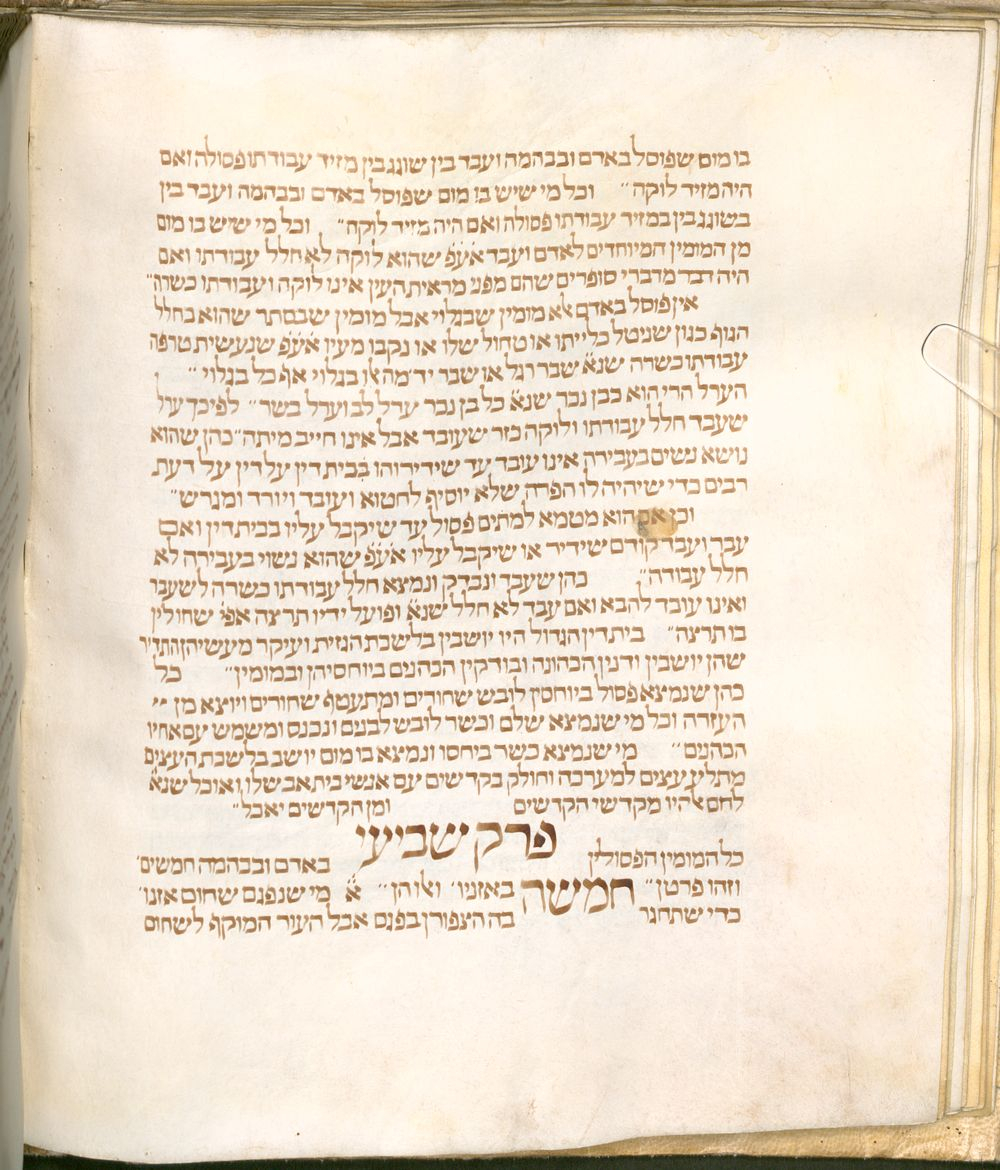 בו מום שפוסל באדם ובבהמה ועבד בין שוגג בין מזיד עבודתו פסולה ואם
היה מזיד לוקה״ וכל מי שיש בו מום שפוסל באדם ובבהמה ועבד בין
בשוגג בין במזיד עבודתו פסולה ואם היה מזיד לוקה״ וכל מי שיש בו מום
מן המומין המיוחדים לאדם ועבד אע״פ שהוא לוקה לא חלל עבודתו ואם
היה דבר מדברי סופרים שהם מפני מראית העין אינו לוקה ועבודתו כשרה״
אין פוסל באדם אלא מומין שבגלוי אבל מומין שבסתר שהוא בחלל
הגוף כגון שניטל כלייתו או טחול שלו או נקבו מעיו אע״פ שנעשית טרפה
עבודתו כשרה שנא׳ שבר רגל או שבר יד מה אלו בגלוי אף כל בגלוי״
הערל הרי הוא כבן נכר שנא׳ כל בן נכר ערל לב וערל בשר״ לפיכך ערל
שעבד חלל עבודתו ולוקה כזר שעובד אבל אינו חייב מיתה״ כהן שהוא
נושא נשים בעבירה אינו עובד עד שידירוהו בבית דין על דין על דעת
רבים כדי שיהיה לו הפרה שלא יוסיף לחטוא ועובד ויורד ומגרש״
וכן אם הוא מטמא למתים פסול עד שיקבל עליו בבית דין ואם
עבר ועבד קודם שידיר או שיקבל עליו אע״פ שהוא נשוי בעבירה לא
חלל עבודה״ כהן שעבד ונבדק ונמצא חלל עבודתו כשרה לשעבר
ואינו עובד להבא ואם עבד לא חלל שנא׳ ופועל ידיו תרצה אפי׳ שחולין
בו תרצה״ בית דין הגדול היו יושבין בלשכת הגזית ועיקר מעשיהן התדיר
שהן יושבין ודנין הכהונה ובודקין הכהנים ביוחסיהן ובמומין״ כל
כהן שנמצא פסול ביוחסין לובש שחורים ומתעטף שחורים ויוצא מן
העזרה וכל מי שנמצא שלם וכשר לובש לבנים ונכנס ומשמש עם אחיו
הכהנים״ מי שנמצא כשר ביחסו ונמצא בו מום יושב בלשכת העצים
מתליע עצים למערכה וחולק בקדשים עם אנשי בית אב שלו ואוכל שנא׳
לחם אלהיו מקדשי הקדשים ומן הקדשים יאכל״
פרק שביעי
כל המומין הפסולין באדם ובבהמה חמשים׳
וזהו פרטן״ חמשה באזניו׳ ואלו הן״ א׳ מי שנפגם שחום אזנו׳
כדי שתחגר בה הצפורן בפגם אבל העור המוקף לשחום